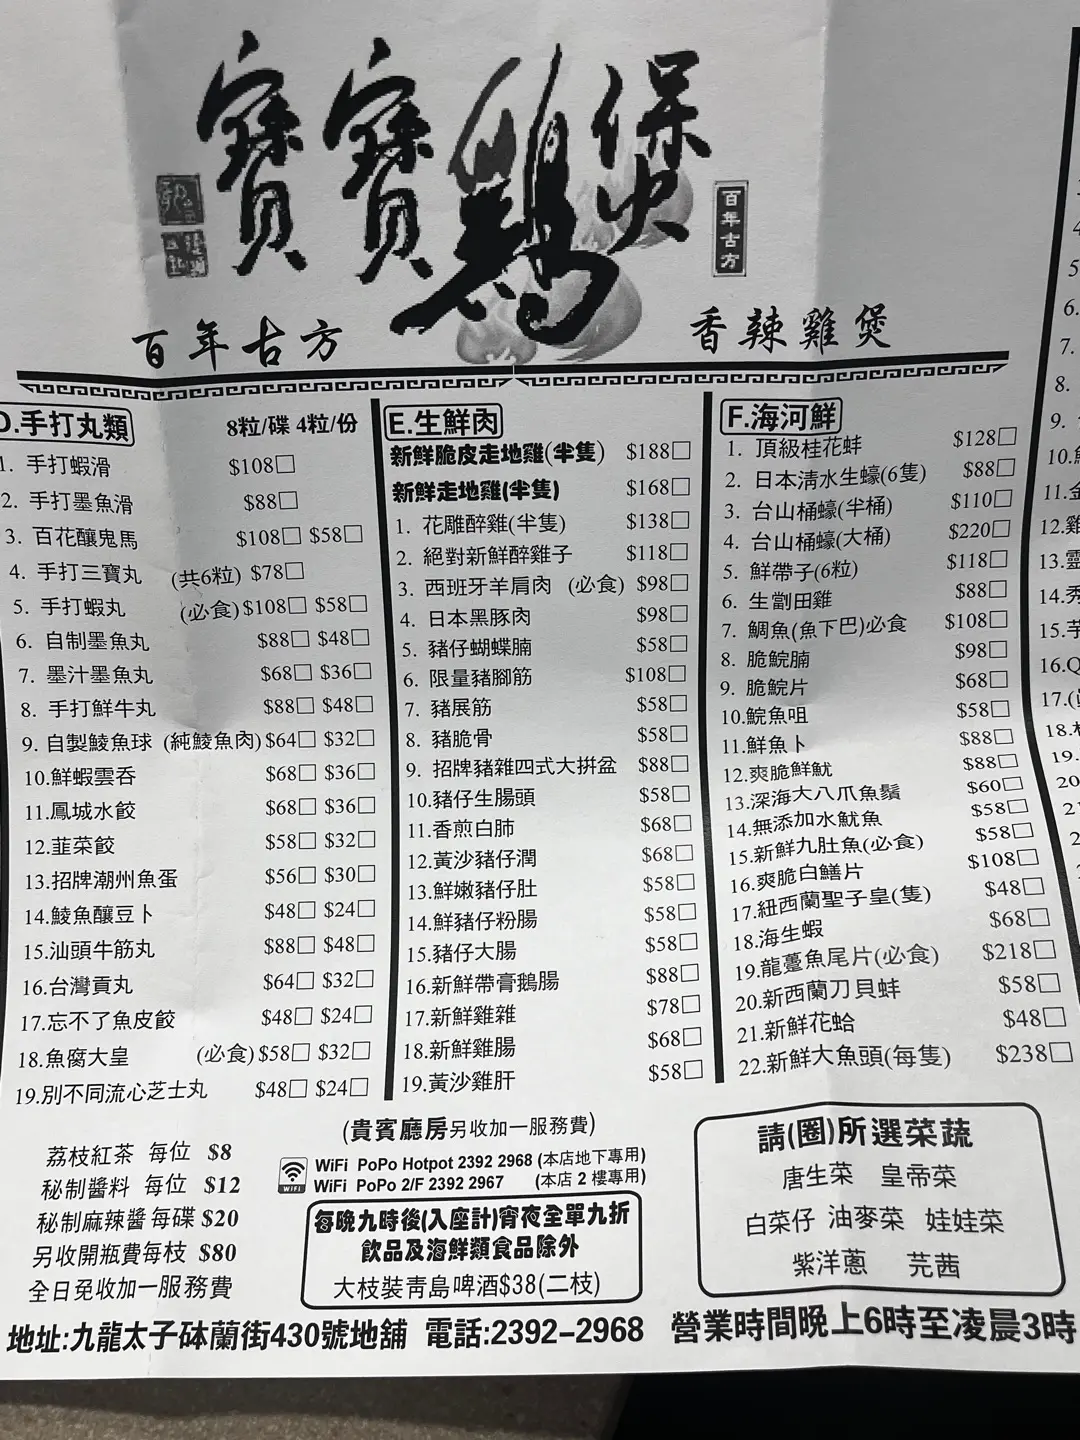 寶寶鷄煲
百年古方
百年古方
香辣雞煲
D.手打丸類 8粒/碟 4粒/份
1. 手打蝦滑 $108□
2. 手打墨魚滑 $88□
3. 百花釀鬼馬 $108□ $58□
4. 手打三寶丸 (共6粒) $78□
5. 手打蝦丸 (必食) $108□ $58□
6. 自制墨魚丸 $88□ $48□
7. 墨汁墨魚丸 $68□ $36□
8. 手打鮮牛丸 $88□ $48□
9. 自製鯪魚球 (純鯪魚肉) $64□ $32□
10.鮮蝦雲吞 $68□ $36□
11.鳳城水餃 $68□ $36□
12.韮菜餃 $58□ $32□
13.招牌潮州魚蛋 $56□ $30□
14.鯪魚釀豆卜 $48□ $24□
15.汕頭牛筋丸 $88□ $48□
16.台灣貢丸 $64□ $32□
17.忘不了魚皮餃 $48□ $24□
18.魚腐大皇 (必食) $58□ $32□
19.別不同流心芝士丸 $48□ $24□
E.生鮮肉
新鮮脆皮走地雞(半隻) $188□
新鮮走地雞(半隻) $168□
1. 花雕醉雞(半隻) $138□
2. 絕對新鮮醉雞子 $118□
3. 西班牙羊肩肉 (必食) $98□
4. 日本黑豚肉 $98□
5. 豬仔蝴蝶腩 $58□
6. 限量豬腳筋 $108□
7. 豬展筋 $58□
8. 豬脆骨 $58□
9. 招牌豬雜四式大拼盆 $88□
10.豬仔生腸頭 $58□
11.香煎白肺 $68□
12.黃沙豬仔潤 $68□
13.鮮嫩豬仔肚 $58□
14.鮮豬仔粉腸 $58□
15.豬仔大腸 $58□
16.新鮮帶膏鵝腸 $88□
17.新鮮雞雜 $78□
18.新鮮雞腸 $68□
19.黃沙雞肝 $58□
F.海河鮮
1. 頂級桂花蚌 $128□
2. 日本淸水生蠔(6隻) $88□
3. 台山桶蠔(半桶) $110□
4. 台山桶蠔(大桶) $220□
5. 鮮帶子(6粒) $118□
6. 生劏田雞 $88□
7. 鯛魚(魚下巴)必食 $108□
8. 脆鯇腩 $98□
9. 脆鯇片 $68□
10.鯇魚咀 $58□
11.鮮魚卜 $88□
12.爽脆鮮魷 $88□
13.深海大八爪魚鬚 $60□
14.無添加水魷魚 $58□
15.新鮮九肚魚(必食) $58□
16.爽脆白鱔片 $108□
17.紐西蘭聖子皇(隻) $48□
18.海生蝦 $68□
19.龍躉魚尾片(必食) $218□
20.新西蘭刀貝蚌 $58□
21.新鮮花蛤 $48□
22.新鮮大魚頭(每隻) $238□
荔枝紅茶 每位 $8
秘制醬料 每位 $12
秘制麻辣醬 每碟 $20
另收開瓶費每枝 $80
全日免收加一服務費
(貴賓廳房另收加一服務費)
WiFi
WiFi PoPo Hotpot 2392 2968 (本店地下專用)
WiFi PoPo 2/F 2392 2967 (本店 2 樓專用)
每晚九時後(入座計)宵夜全單九折
飲品及海鮮類食品除外
大枝裝靑島啤酒$38(二枝)
請(圈)所選菜蔬
唐生菜 皇帝菜
白菜仔 油麥菜 娃娃菜
紫洋蔥 芫茜
地址:九龍太子砵蘭街430號地舖 電話:2392-2968 營業時間晚上6時至凌晨3時
4
5
6.
7.
8.
9.
10.
11.金
12.雞
13.靈
14.秀
15.芋
16.Q
17.(
18.
19.
20
2
2